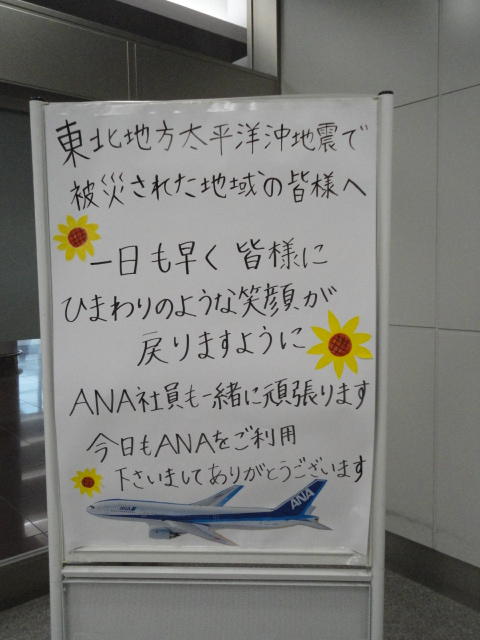 東北地方太平洋沖地震で
被災された地域の皆様へ
一日も早く皆様に
ひまわりのような笑顔が
戻りますように
ANA社員も一緒に頑張ります
今日もANAをご利用
下さいましてありがとうございます
ANA
ANA